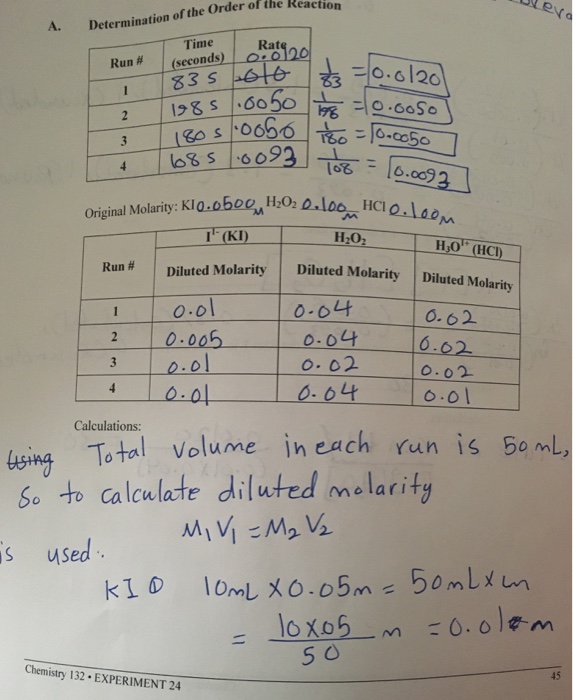 A. Determination of the Order of the Reaction
Run # Time (seconds) Rate
1 83 s 0.0120
2 198 s .0050 1/198 = 0.0050
3 180 s .0050 1/180 = 0.0050
4 108 s .0093 1/108 = 0.0093
1/83 = 0.0120
Original Molarity: KI 0.0500 M H₂O₂ 0.100 M HCl 0.100 M
I¹⁻ (KI) H₂O₂ H₃O¹⁺ (HCl)
Run # Diluted Molarity Diluted Molarity Diluted Molarity
1 0.01 0.04 0.02
2 0.005 0.04 0.02
3 0.01 0.02 0.02
4 0.01 0.04 0.01
Calculations:
Using Total volume in each run is 50 mL,
So to calculate diluted molarity
M₁V₁ = M₂V₂
is used.
KI 10mL X 0.05m = 50mL x
= 10x05/50 m = 0.01 m
Chemistry 132 • EXPERIMENT 24 45